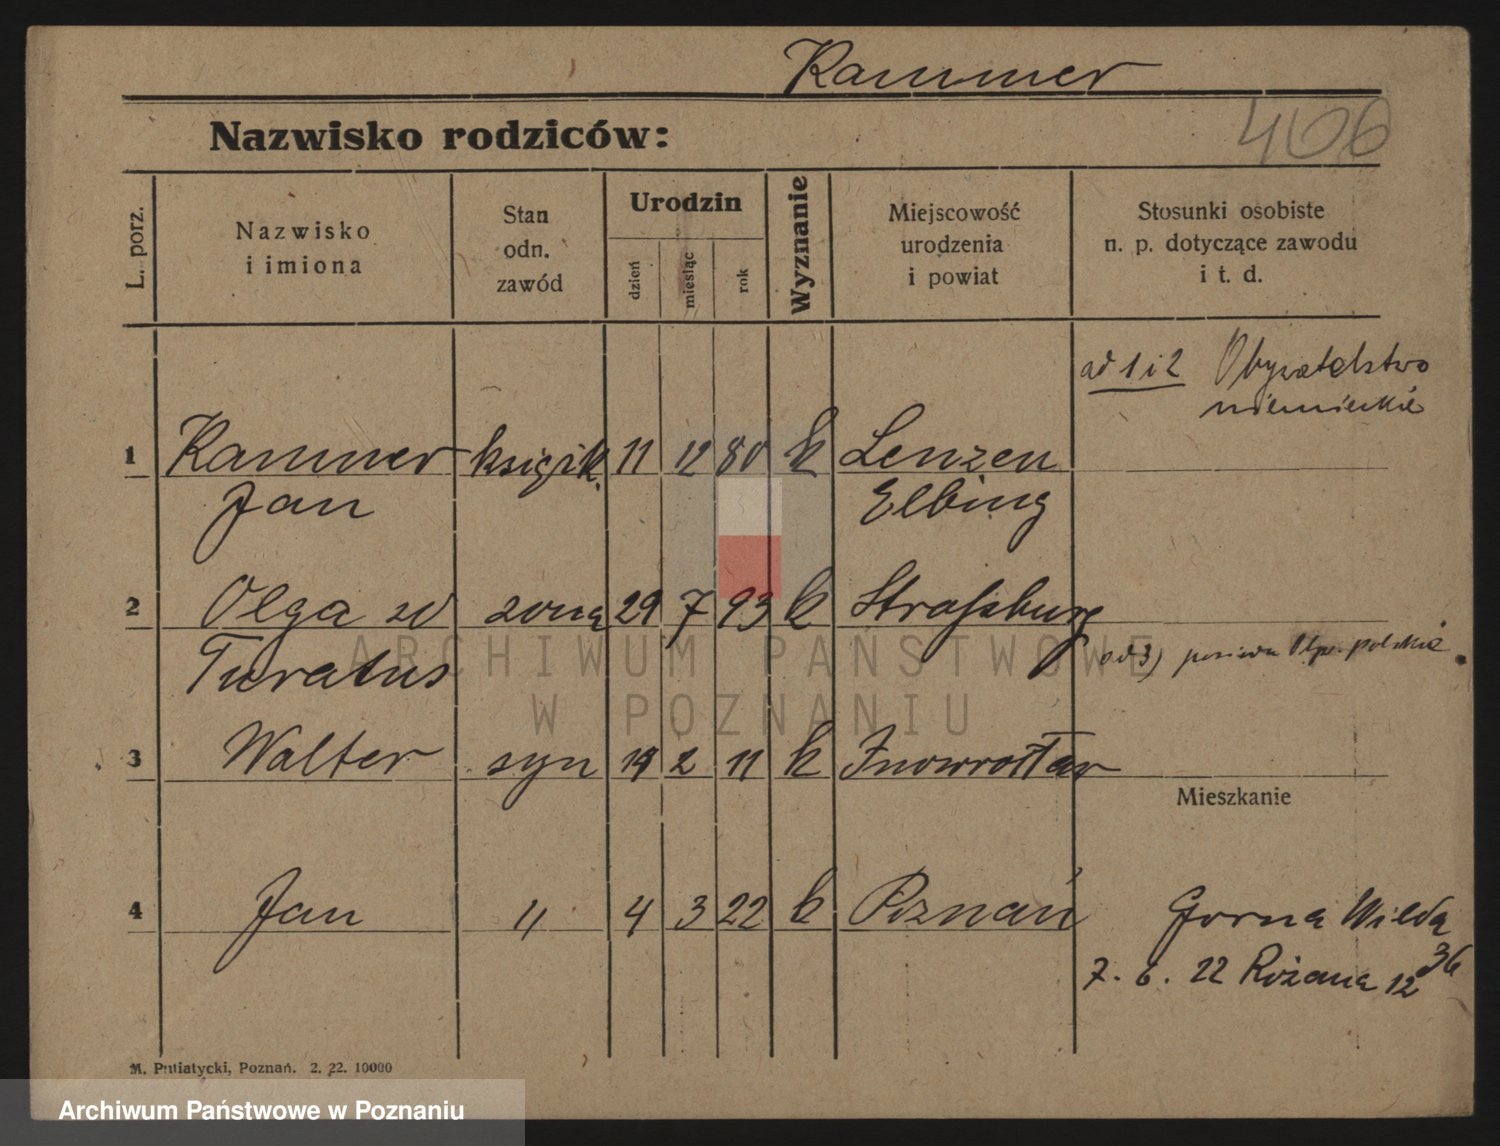 Kammer
406
Nazwisko rodziców:
L. porz.
Nazwisko i imiona
Stan odn. zawód
Urodzin
dzień
miesiąc
rok
Wyznanie
Miejscowość urodzenia i powiat
Stosunki osobiste n. p. dotyczące zawodu i t. d.
ad 1 i 2 Obywatelstwo
niemieckie
1 Kammer księżk. 11 12 80 k Lenzen
Jan Elbing
2 Olga zd żona 29 7 93 k Straſsburg
Turatus
ad 3) polskie
3 Walter syn 19 2 11 k Inowrocław
Mieszkanie
4 Jan " 4 3 22 k Poznań Gorna Wilda
36
7. 6. 22 Rożana 12
M. Putiatycki, Poznań. 2. 22. 10000
ARCHIWUM PAŃSTWOWE
W POZNANIU
Archiwum Państwowe w Poznaniu